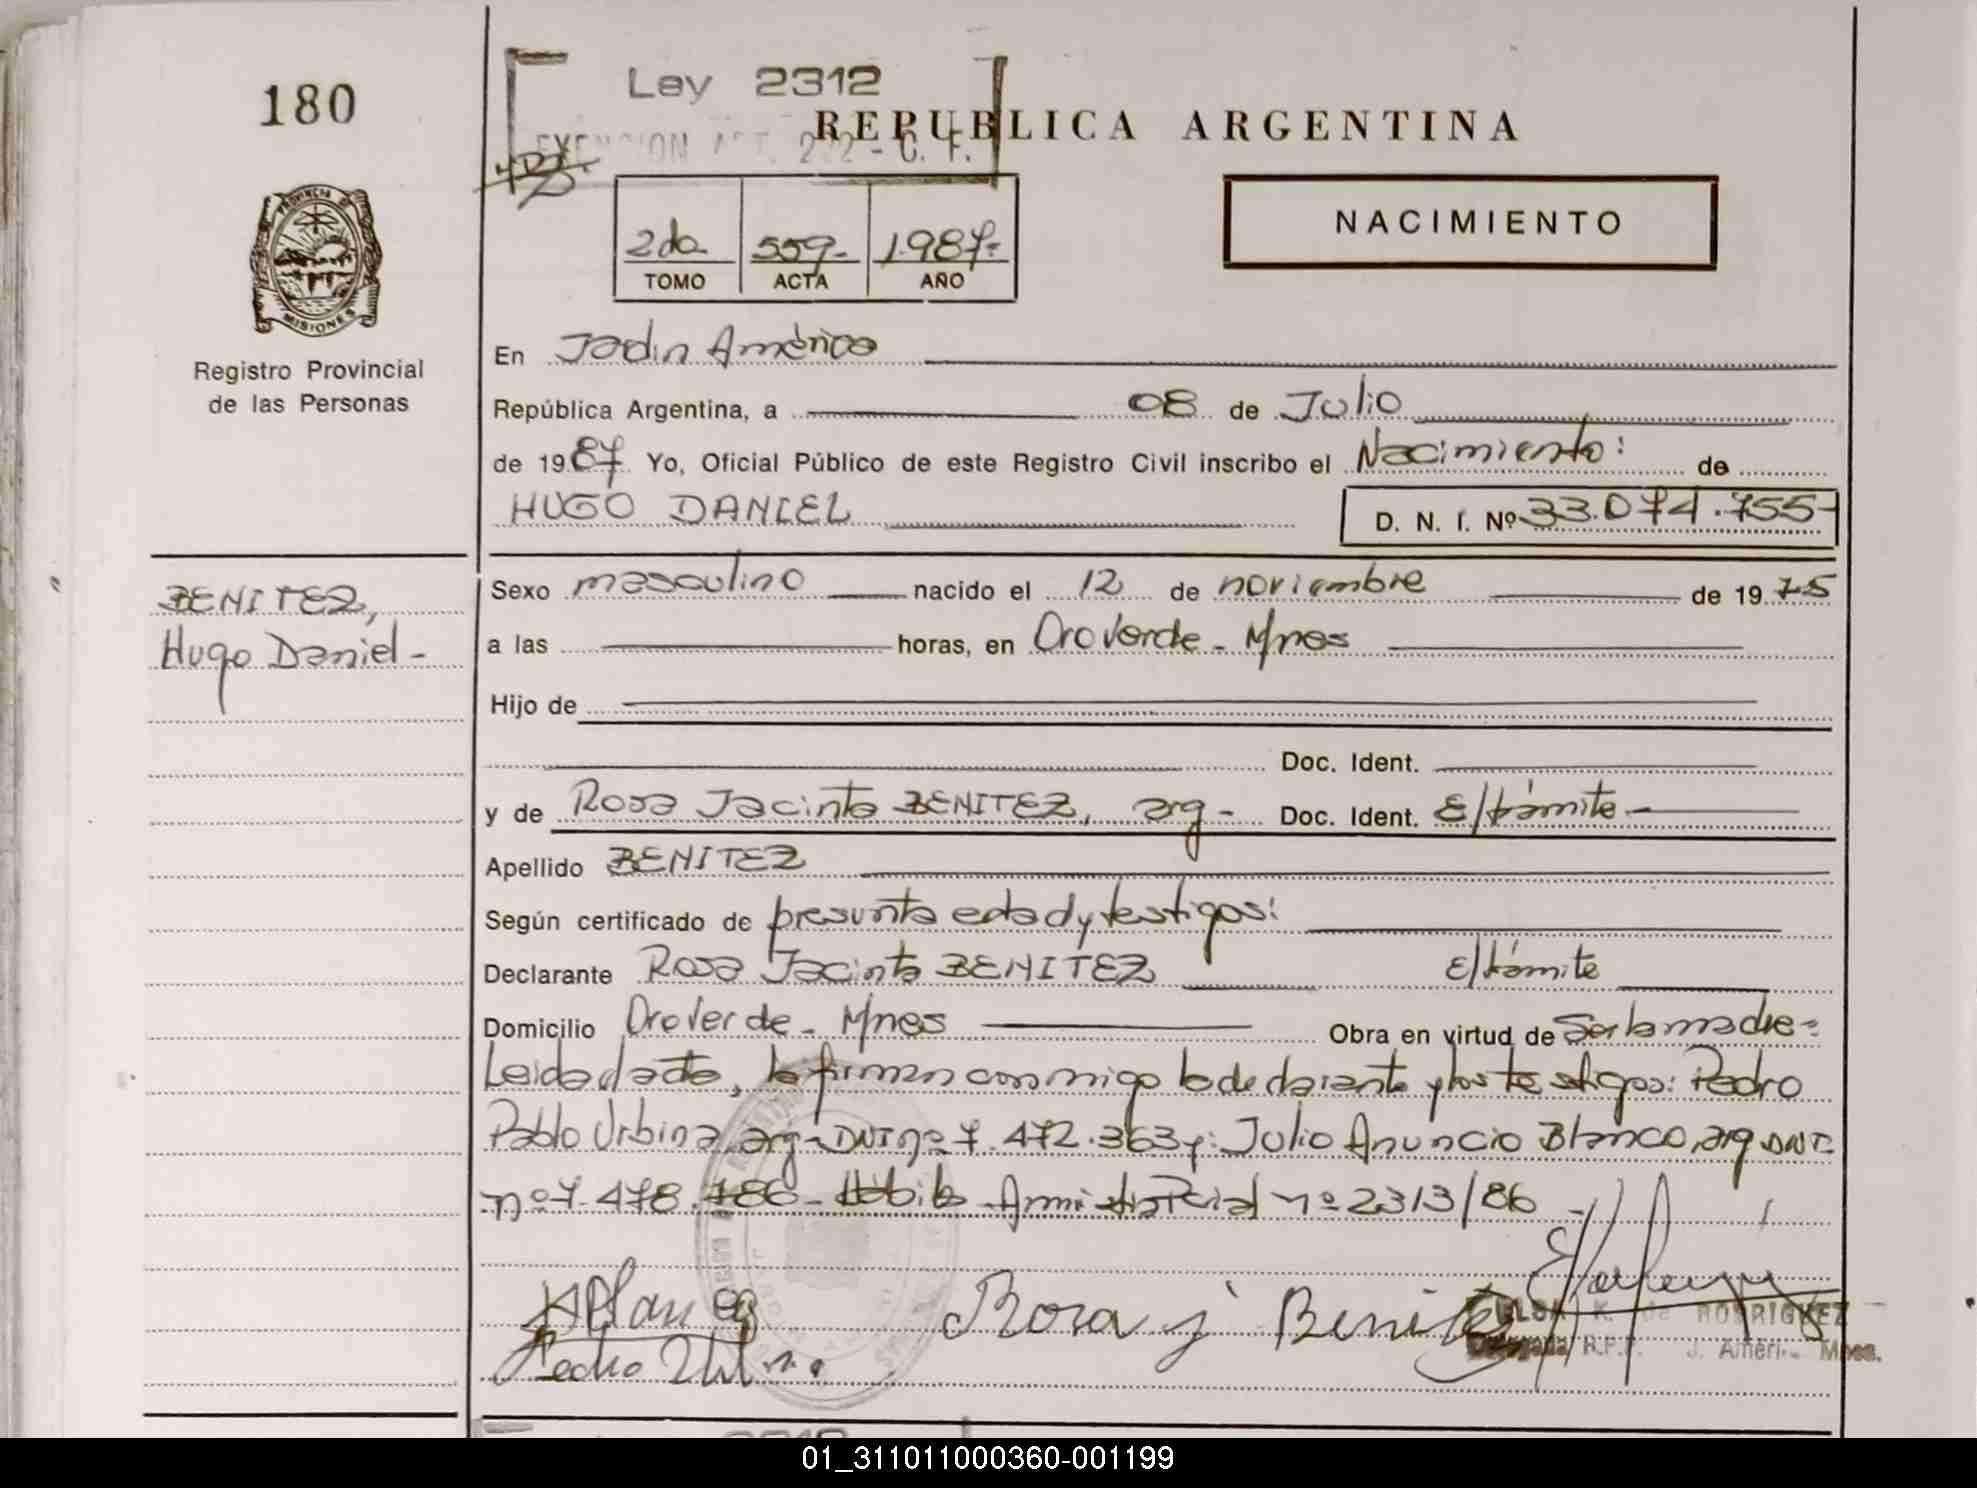 180
Ley 2312
EXENCION ART. 292 - C. F.
REPUBLICA ARGENTINA
NACIMIENTO
2da 559- 1.987-
TOMO ACTA AÑO
PROVINCIA DE
MISIONES
Registro Provincial
de las Personas
En Jadin América
República Argentina, a 08 de Julio
de 1987 Yo, Oficial Público de este Registro Civil inscribo el Nacimiento: de
HUGO DANIEL D. N. I. Nº 33.074.755-
BENITEZ,
Hugo Daniel -
Sexo masculino nacido el 12 de noviembre de 1975
a las horas, en Oro Verde - Mnes
Hijo de
Doc. Ident.
y de Rosa Jacinta BENITEZ, arg - Doc. Ident. E/trámite -
Apellido BENITEZ
Según certificado de presunta edad y testigos:
Declarante Rosa Jacinta BENITEZ E/trámite
Domicilio Oro Verde - Mnes Obra en virtud de Ser la madre =
Leida el acta, la firman conmigo la declarante y los testigos: Pedro
Pablo Urbina, arg - DNI nº 7.472.363 y: Julio Anuncio Blanco, arg DNI.
nº 7.478.786 - Habilb Armi nº 2313/86 -
Rosa J Benitez
Pedro
ELSA K. de RODRIGUEZ
Delegada R.P.P. J. Améri Mnes.
01_311011000360-001199